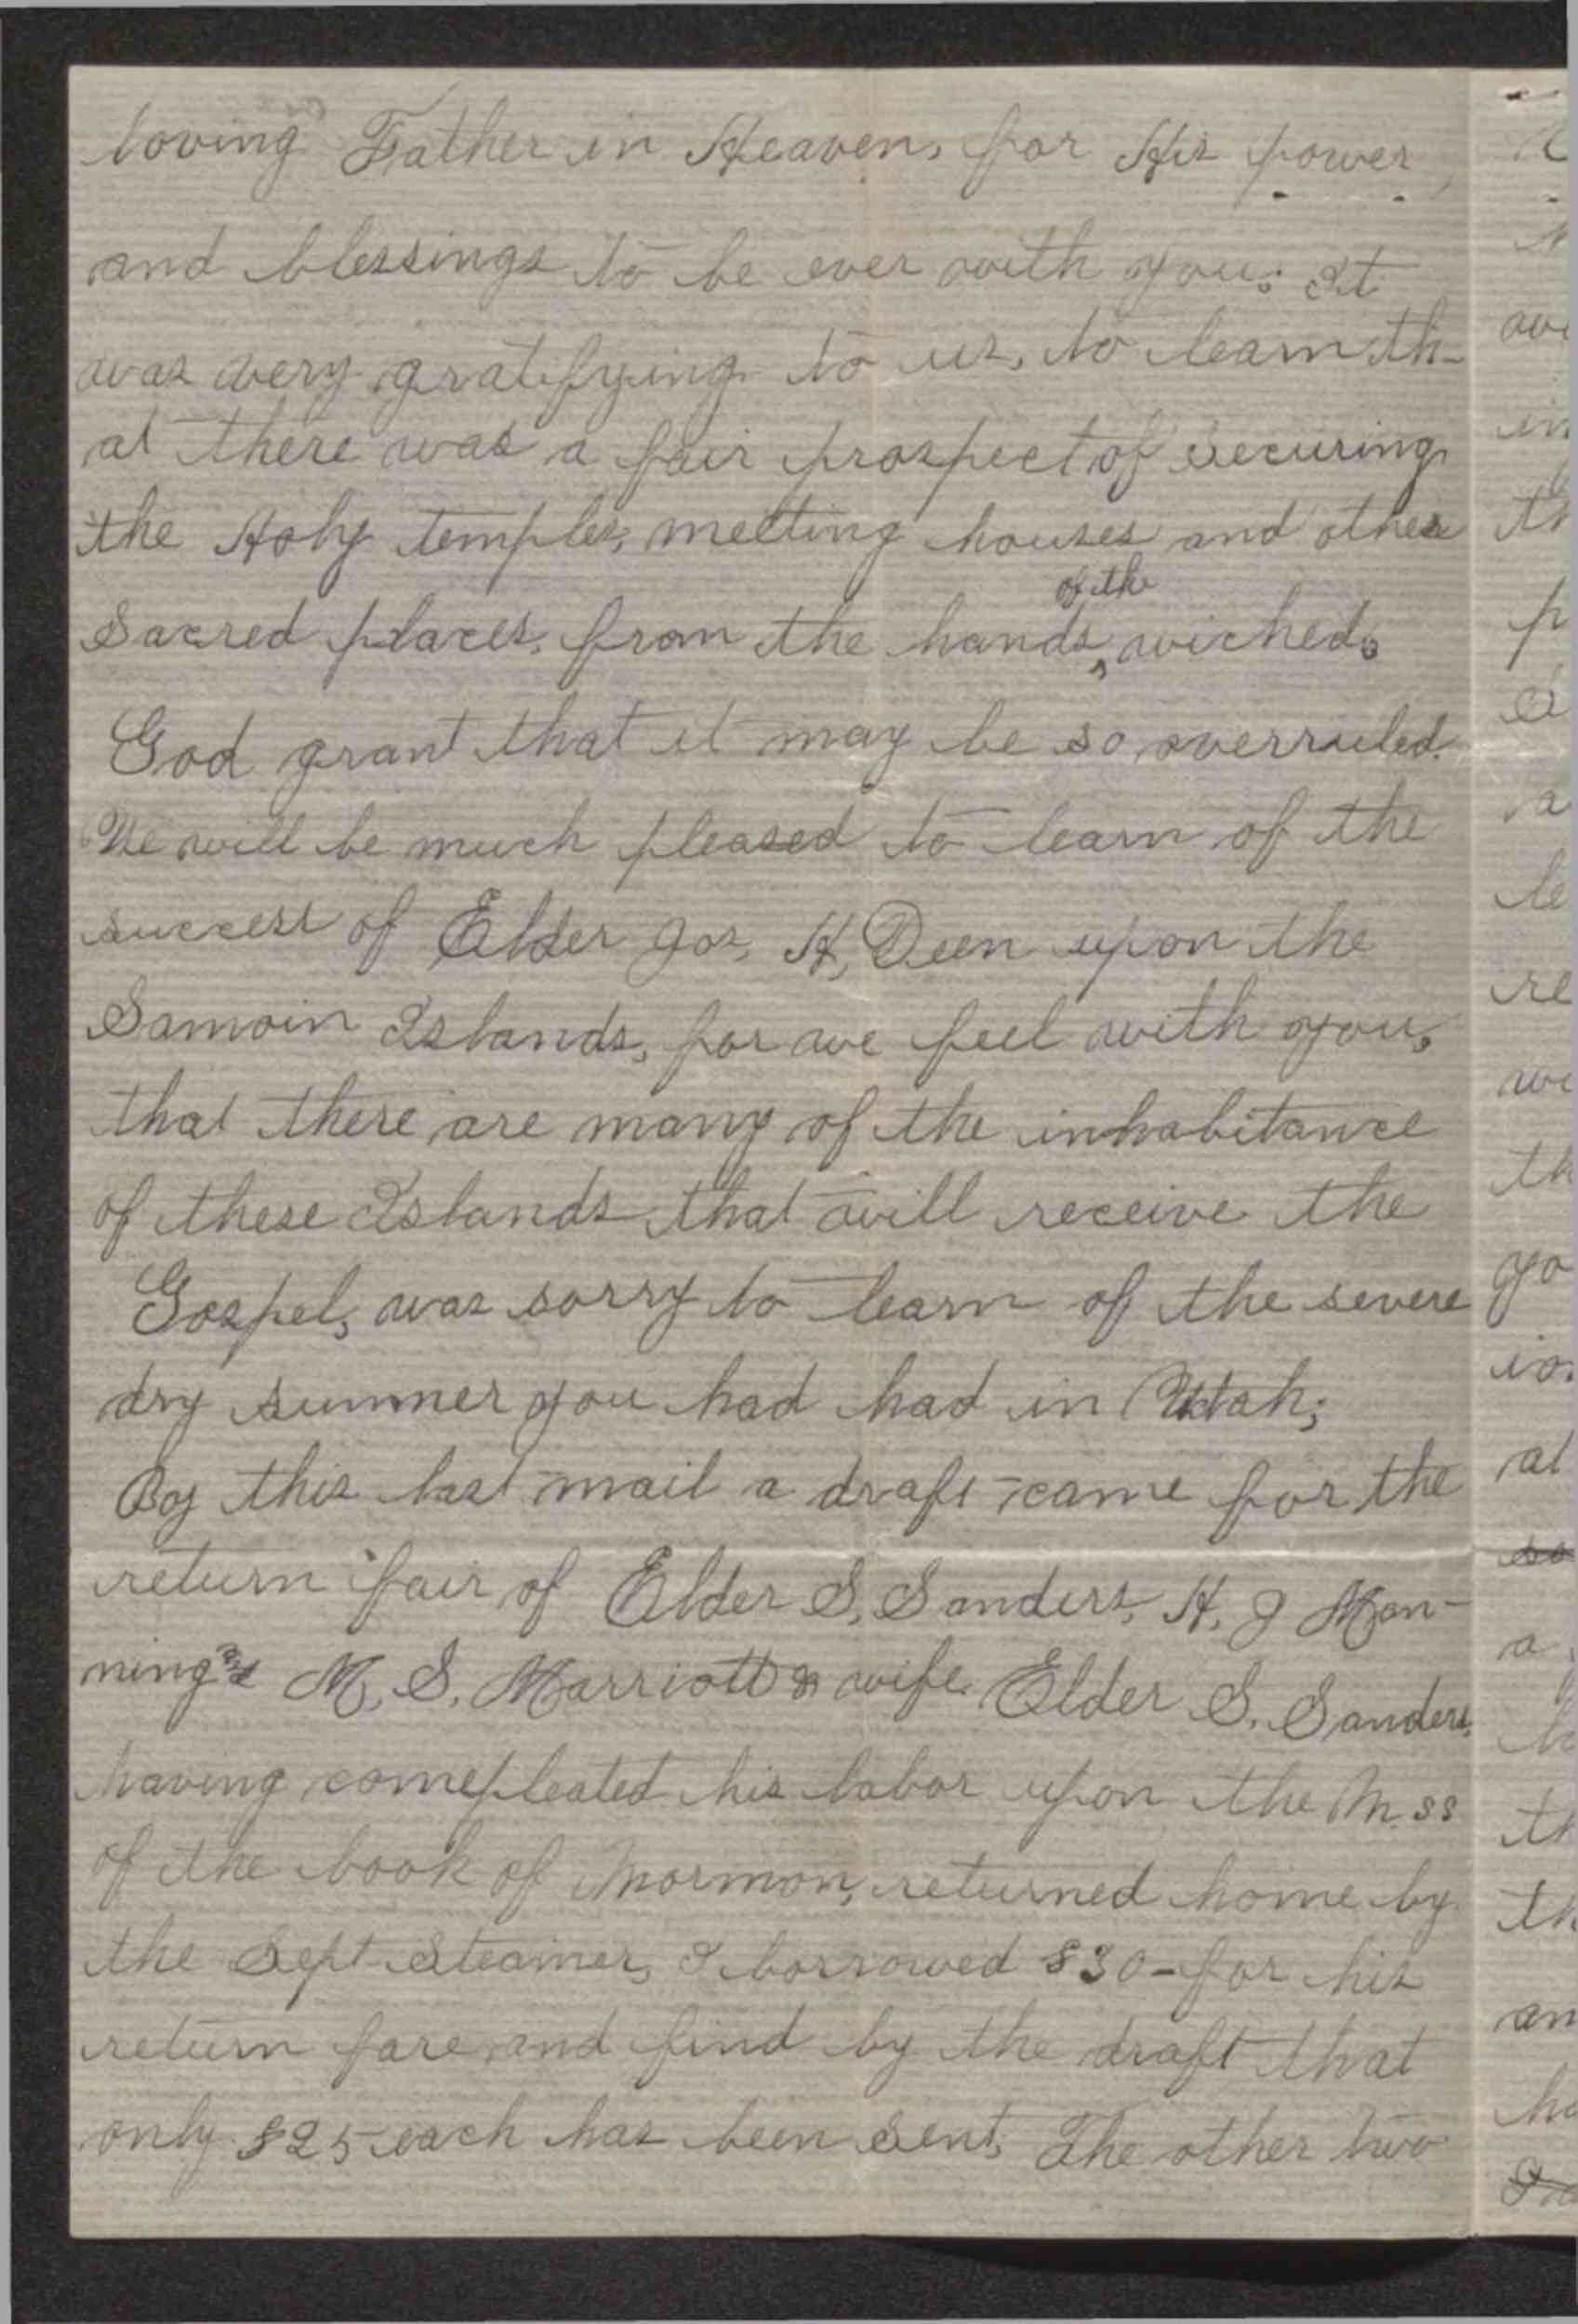 loving Father in Heaven, for His power,
and blessings to be ever with you: It
was very gratifying to us, to learn th-
at there was a fair prospect of securing
the Holy temples, meeting houses and other
Sacred places, from the hands of the wicked.
God grant that it may be so overruled.
We will be much pleased to learn of the
success of Elder Jos, H, Deen upon the
Samoin Islands, for we feel with you,
that there are many of the inhabitance
of these Islands that will receive the
Gospel, was sorry to learn of the severe
dry summer you had had in Utah;
By this last mail a draft came for the
return fair of Elder S, Sanders, H, J Man-
ning & M, S, Marriott & wife. Elder S. Sanders,
having comepleated his labor upon the M.ss
of the book of Mormon, returned home by
the Sept Steamer, I borrowed $30- for his
return fare and find by the draft that
only $25 each has been sent, The other two